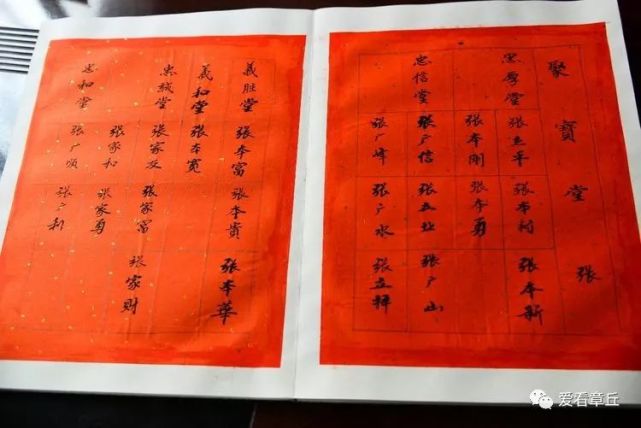 聚寶堂張
忠厚堂 張立平 張本 張本新
張本剛 張本勇
忠信堂 張广信 張立业 張广山
張广峰 張广水 張立祥
義胜堂 張本富 張本貴 張本華
義和堂 張本寬
忠誠堂 張家友 張家富 張家財
張家和 張家勇
忠和堂 張广順 張广利
爱看章丘